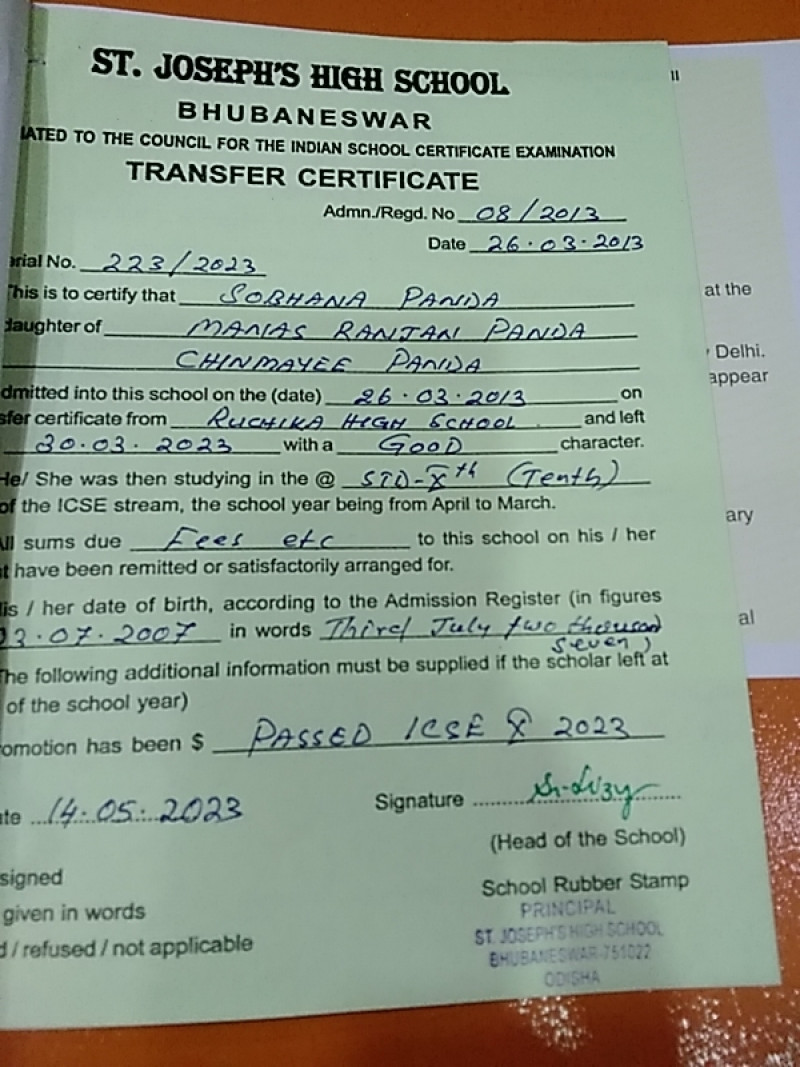 ST. JOSEPH'S HIGH SCHOOL
BHUBANESWAR
IATED TO THE COUNCIL FOR THE INDIAN SCHOOL CERTIFICATE EXAMINATION
TRANSFER CERTIFICATE
Admn./Regd. No 08/2013
Date 26.03.2013
erial No. 223/2023
This is to certify that SOBHANA PANDA
daughter of MANAS RANJAN PANDA
CHINMAYEE PANDA
dmitted into this school on the (date) 26.03.2013 on
sfer certificate from RUCHIKA HIGH SCHOOL and left
30.03.2023 with a GOOD character.
He/ She was then studying in the @ STD-Xth (Tenth)
of the ICSE stream, the school year being from April to March.
All sums due Fees etc to this school on his / her
t have been remitted or satisfactorily arranged for.
is / her date of birth, according to the Admission Register (in figures
03.07.2007 in words Third July two thousand
seven)
The following additional information must be supplied if the scholar left at
of the school year)
omotion has been $ PASSED ICSE X 2023
te 14.05.2023 Signature Sr. Lizy
(Head of the School)
signed School Rubber Stamp
given in words PRINCIPAL
d / refused / not applicable ST. JOSEPH'S HIGH SCHOOL
BHUBANESWAR-751022
ODISHA
at the
Delhi.
appear
ary
al